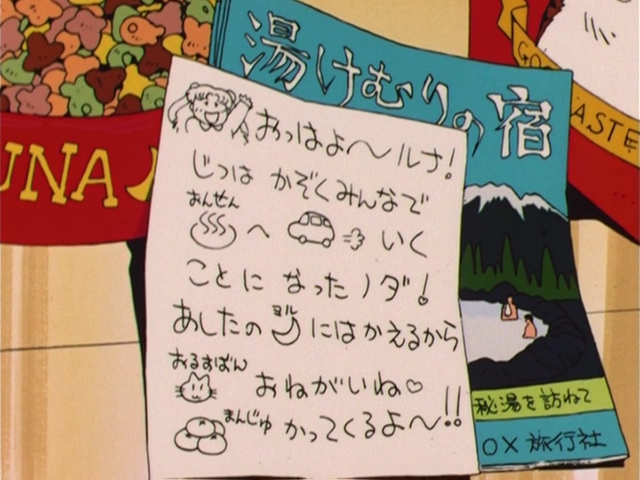 UNA
湯けむりの宿
GO
TASTE
おっはよ〜ルナ!
じつは かぞくみんなで
おんせん
へ いく
ことに なったノダ!
あしたの ヨル にはかえるから
おるすばん
おねがいね♡
まんじゅ かってくるよ〜!!
秘湯を訪ねて
OX旅行社